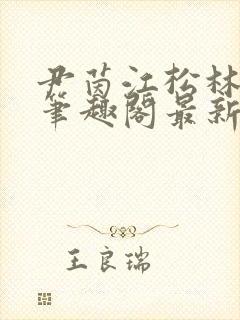 尹茵江松林
笔趣阁最新
王良瑞